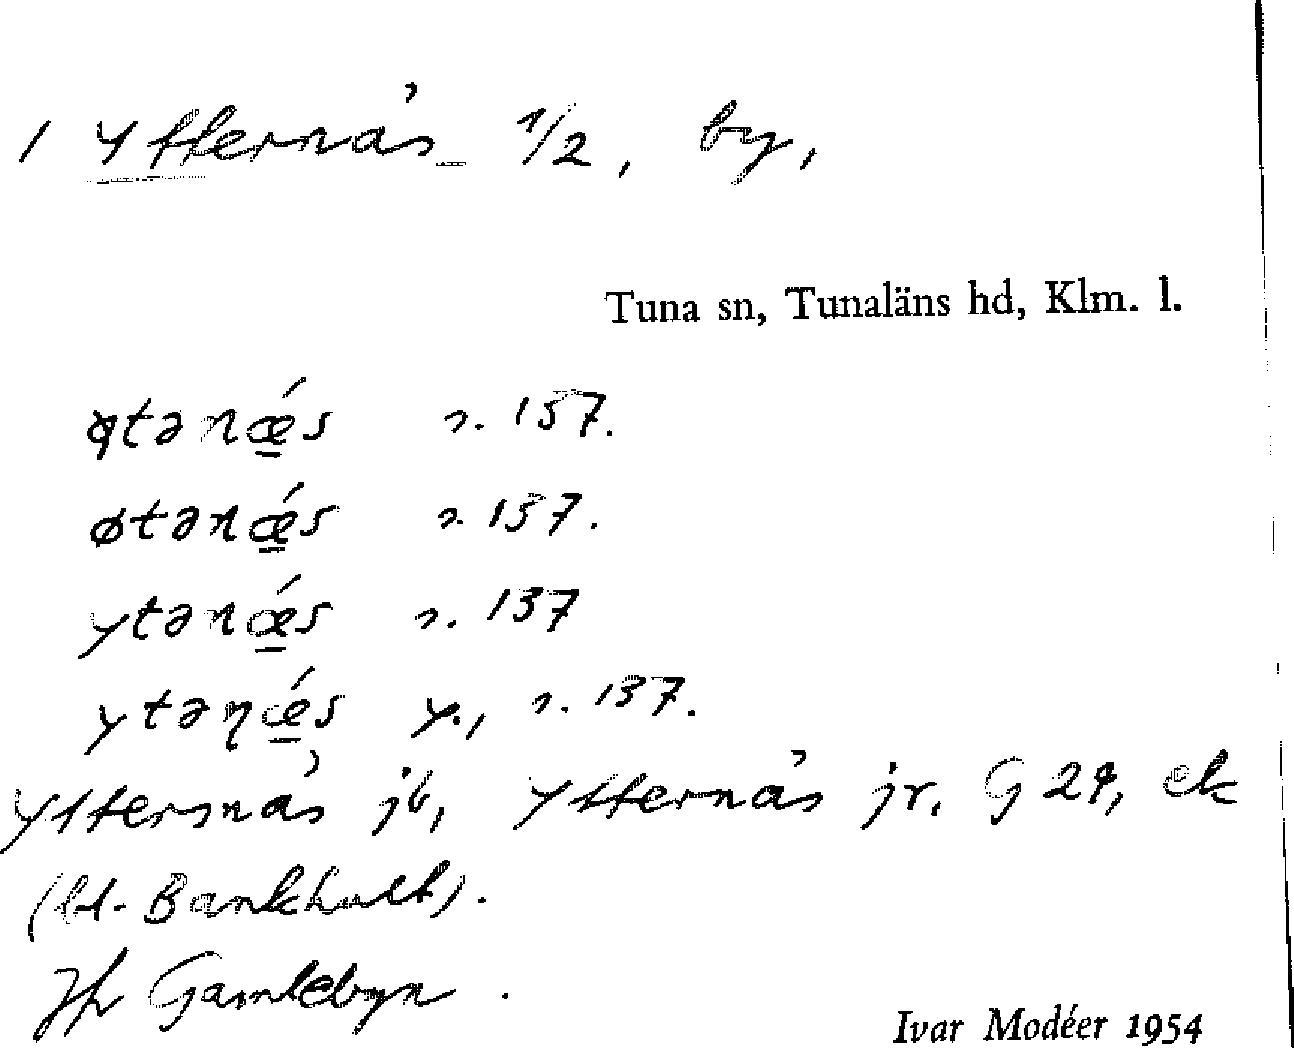 / Ytternäs 1/2, by,
Tuna sn, Tunaläns hd, Klm. l.
øtənǽs s. 157.
øtənǽs s. 137.
ytənǽs s. 137
ytəɳǽs y., s. 137.
Yttersnäs jb, Ytternäs jr. G 29, ek
(bl. Bankhult).
Jfr Gamlebyn.
Ivar Modéer 1954